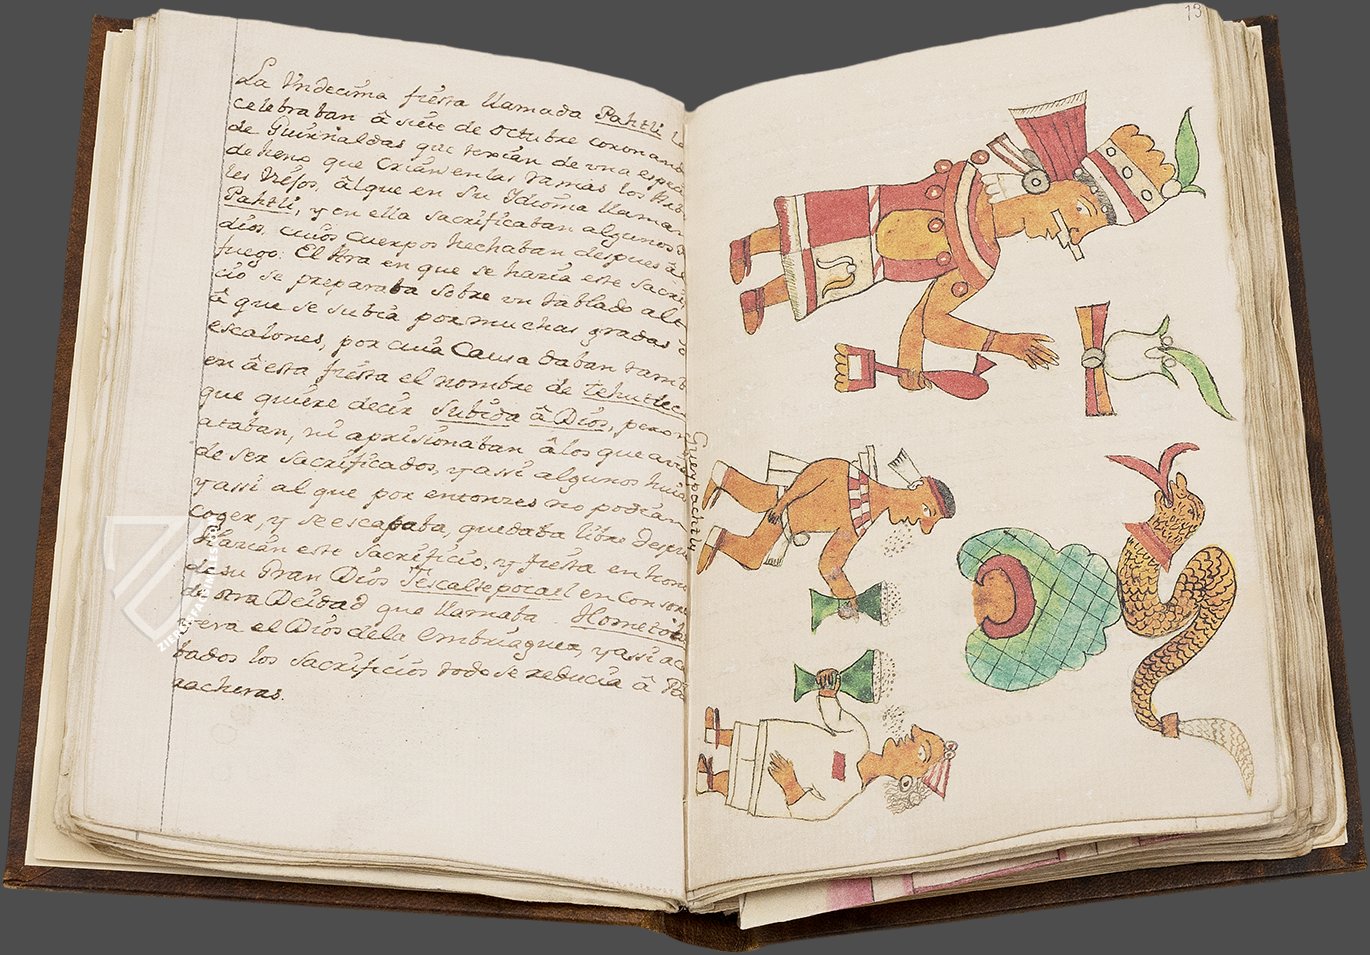 La Vndecima fiesta llamada Pahtli
celebraban â siete de octubre coronan
de Guirnaldas que texian de vna espe
de heno que Crian en las ramas los
les viejos, âl que en su Idioma llaman
Pahtli, y en ella sacrificaban algunos
dios, cuios cuerpos hechaban despues âl
fuego: El Ara en que se haria este sacri
cio se preparaba sobre vn tablado alt
â que se subia por muchas gradas ô
escalones, por cuia Causa daban tamb
en â esta fiesta el nombre de tehutlec
que quiere decir Subida â Dios, pero n
ataban, ni aprisionaban â los que avi
de ser sacrificados, y assi algunos huia
y assi al que por entonzes no podian
coger, y se escapaba, quedaba libre despu
Harian este sacrificio, y fiesta en hon
de su Gran Dios Tescalipocatl en
de otra Deidad que llamaba Hometoch
era el Dios de la embriaguez, y assi aca
bados los sacrificios todo se reducia â Bo
rracheras.
13
Gueypachtly